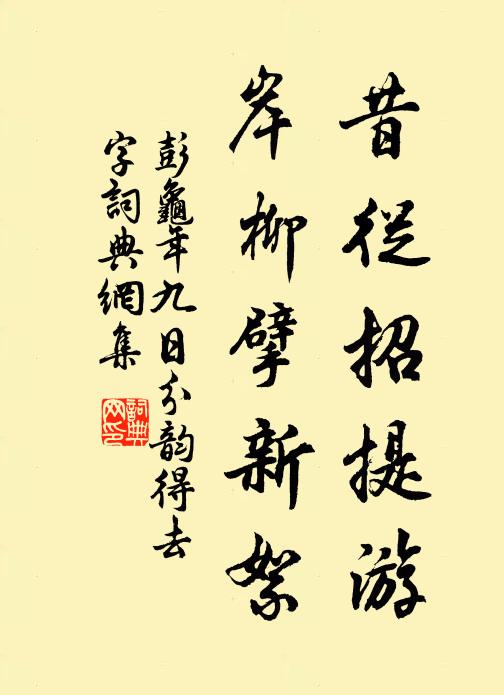 昔從招提游
岸柳擘新絮
彭龜年九日分韵得去
字詞典網集
詞典
网印